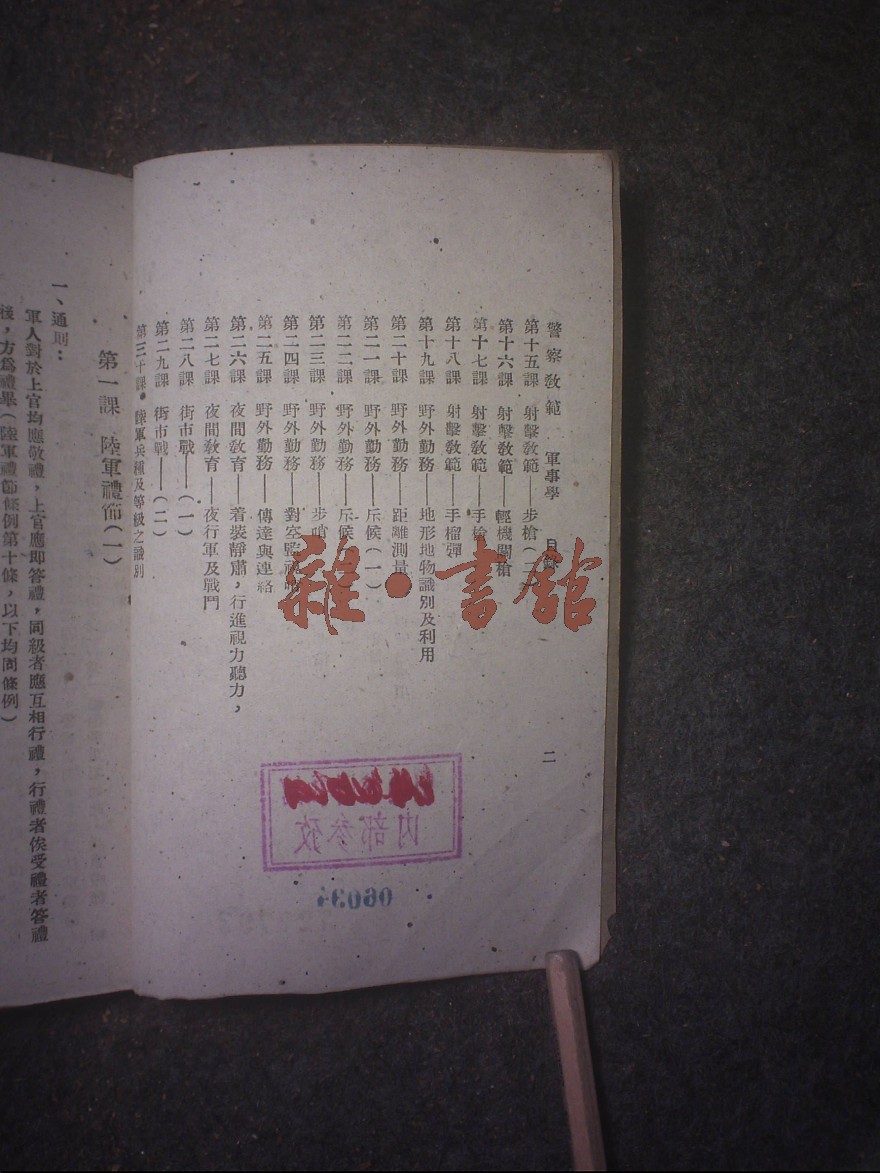 警察教範 軍事學 目錄 二
第十五課 射擊教範——步槍(二)
第十六課 射擊教範——輕機關槍
第十七課 射擊教範——手槍
第十八課 射擊教範——手榴彈
第十九課 野外勤務——地形地物識別及利用
第二十課 野外勤務——距離測量
第二一課 野外勤務——斥候(一)
第二二課 野外勤務——斥候
第二三課 野外勤務——步哨
第二四課 野外勤務——對空監視哨
第二五課 野外勤務——傳達與連絡
第二六課 夜間教育——着裝靜肅,行進視力聽力,
第二七課 夜間教育——夜行軍及戰鬥
第二八課 街市戰——(一)
第二九課 街市戰——(二)
第三十課 陸軍兵種及等級之識別
第一課 陸軍禮節(一)
一、通則:
軍人對於上官均應敬禮,上官應即答禮,同級者應互相行禮,行禮者俟受禮者答禮
後,方爲禮畢(陸軍禮節條例第十條,以下均同條例)
雜·書舘
内部参攷